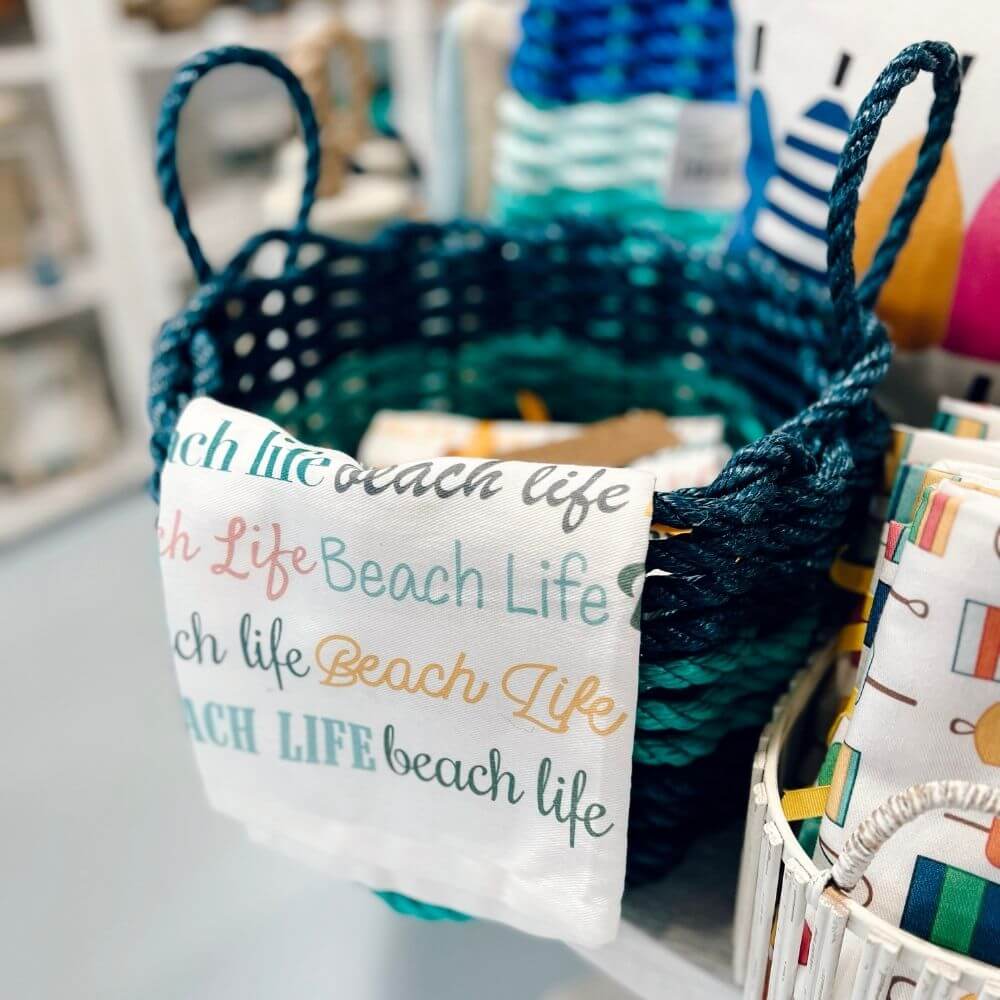 ach life beach life
ch Life Beach Life
ch life Beach Life
EACH LIFE beach life